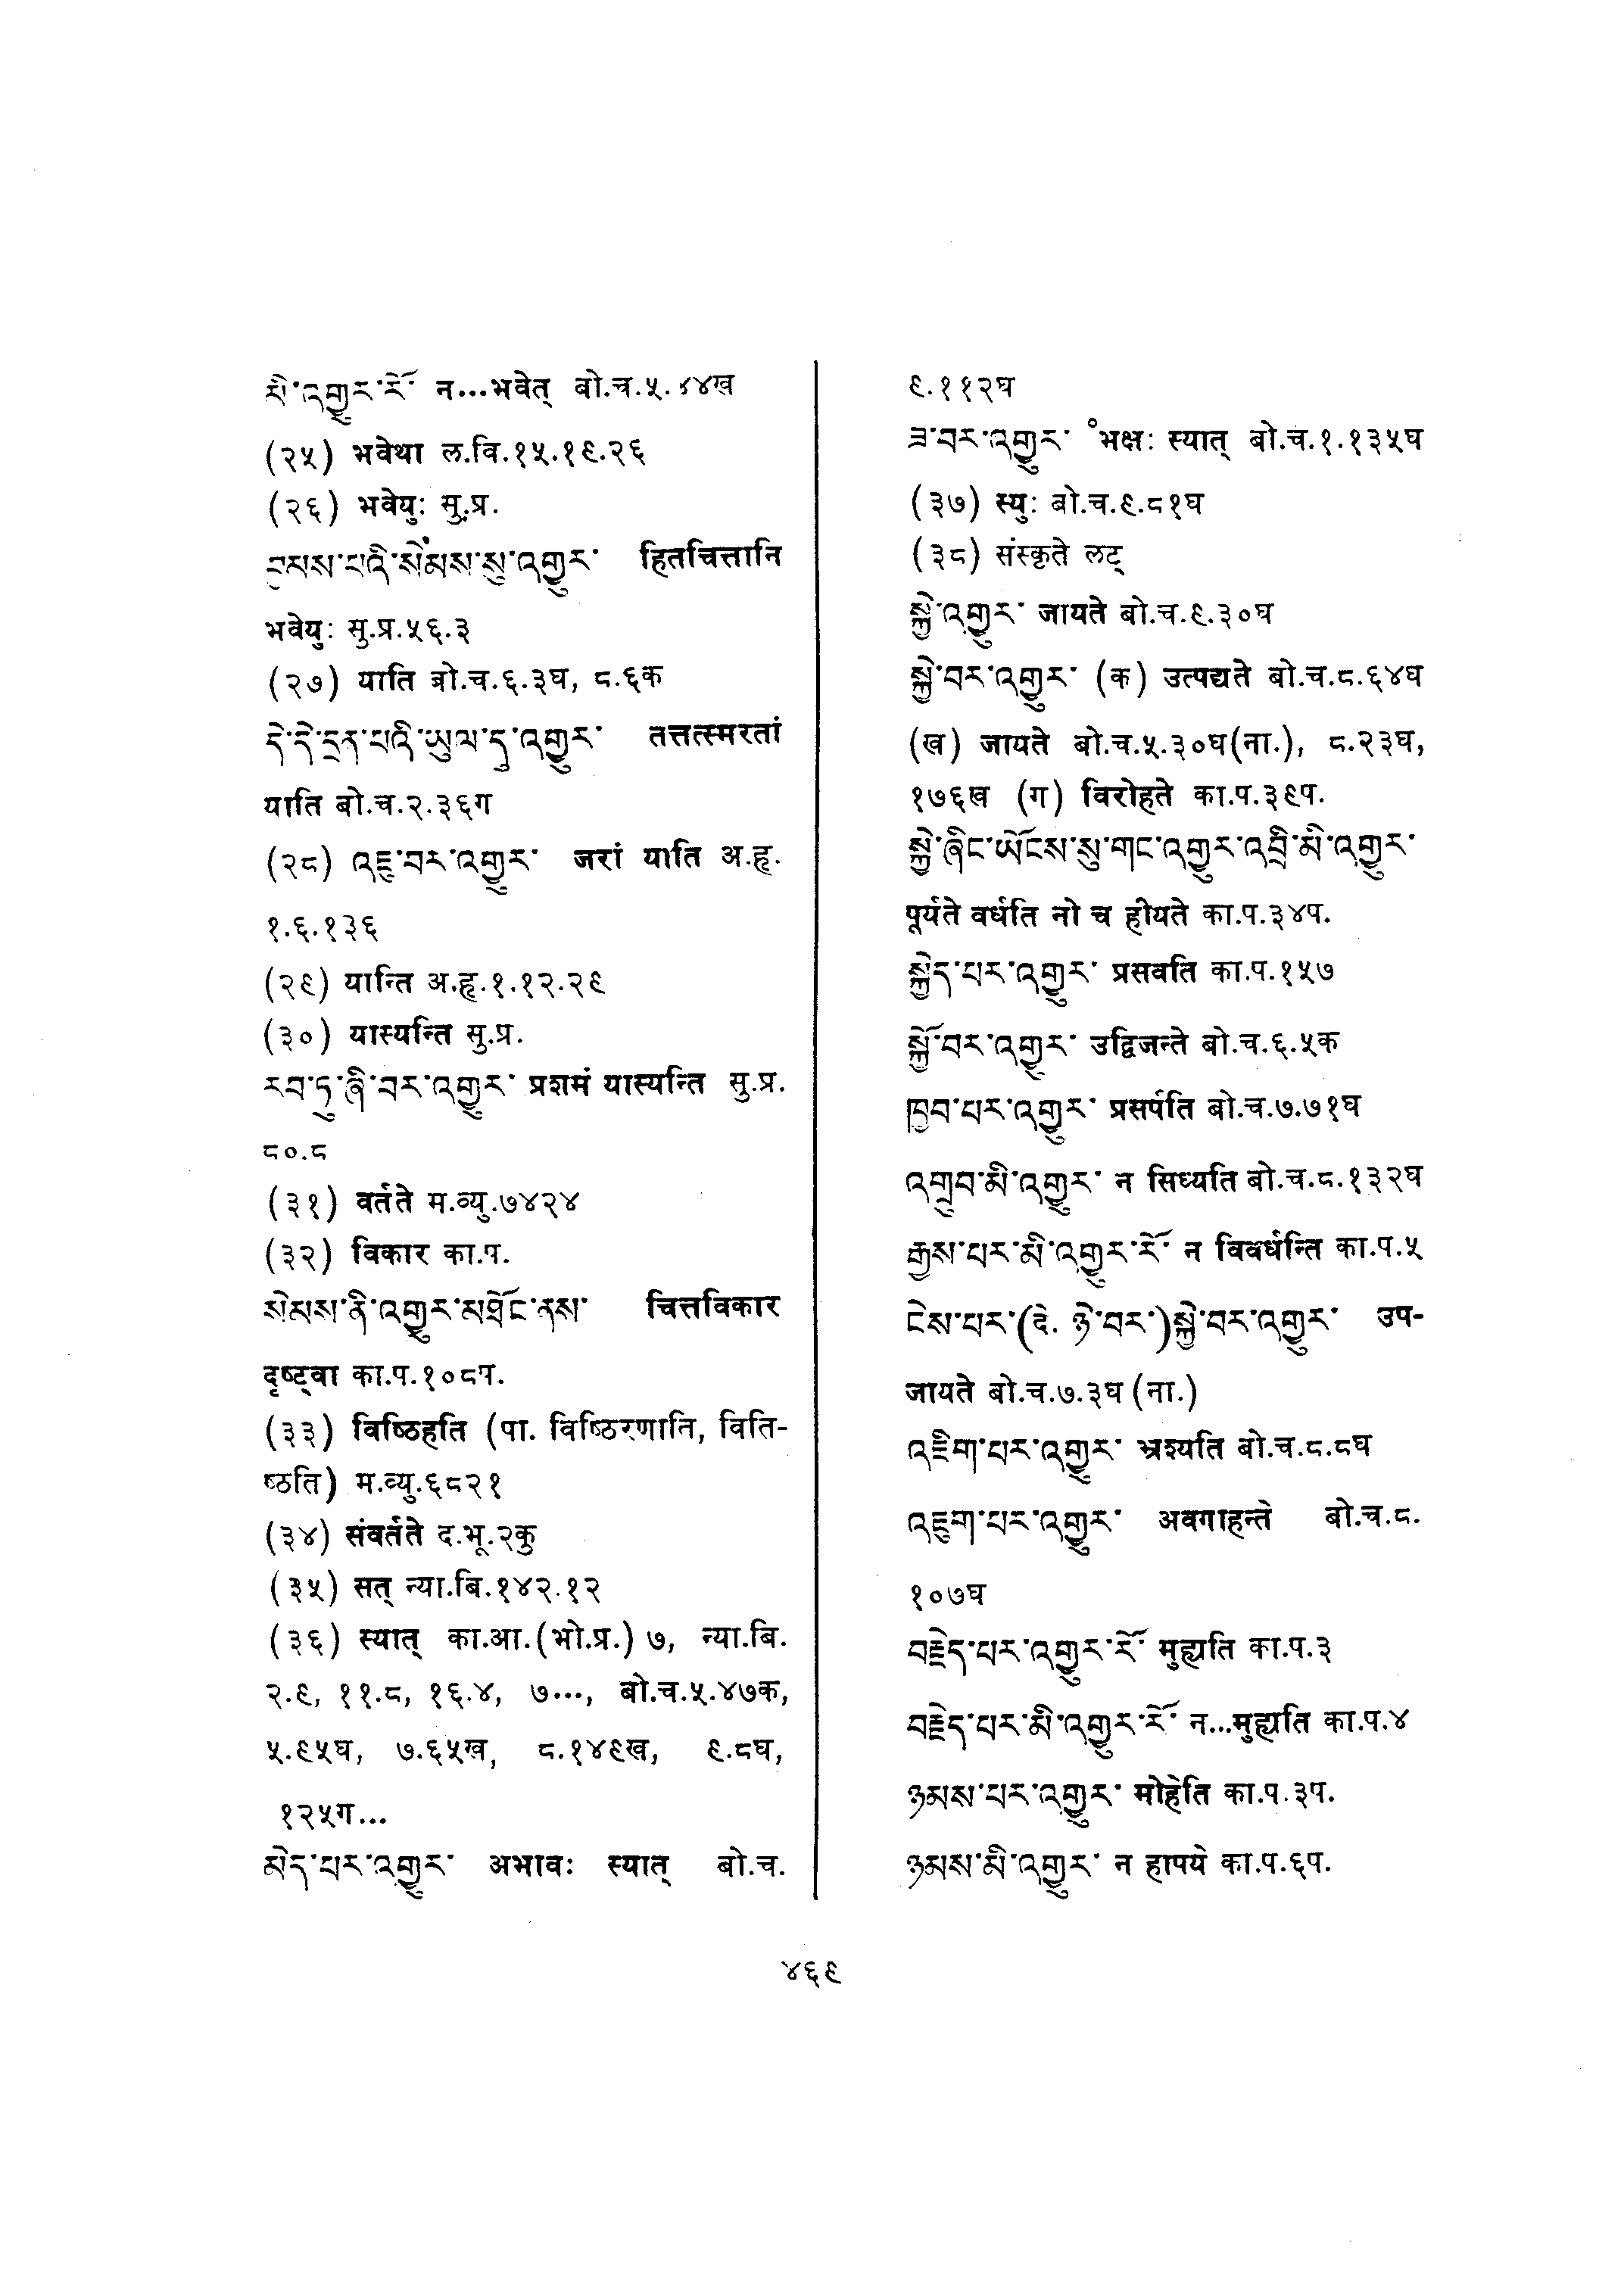 མི་འགྱུར་རོ་ **न...भवेत्** बो.च.५.४४ख
(२५) भवेथा ल.वि.१५.१९.२६
(२६) भवेयुः सु.प्र.
བྱམས་པའི་སེམས་སུ་འགྱུར་ हितचित्तानि
भवेयुः सु.प्र.५६.३
(२७) याति बो.च.६.३घ, ८.६क
དེ་དེ་དྲན་པའི་ཡུལ་དུ་འགྱུར་ तत्तत्स्मरतां
याति बो.च.२.३६ग
(२८) འཇུ་བར་འགྱུར་ जरां याति अ.हृ.
१.६.१३६
(२९) यान्ति अ.हृ.१.१२.२९
(३०) यास्यन्ति सु.प्र.
རབ་ཏུ་ཞི་བར་འགྱུར་ प्रशमं यास्यन्ति सु.प्र.
८०.८
(३१) वर्तते म.व्यु.७४२४
(३२) विकार का.प.
སེམས་ནི་འགྱུར་མཐོང་ནས་ चित्तविकार
दृष्ट्वा का.प.१०८प.
(३३) विष्ठिहति (पा. विष्ठिरणाति, विति-
ष्ठति) म.व्यु.६८२१
(३४) संवर्तते द.भू.२कु
(३५) सत् न्या.बि.१४२.१२
(३६) स्यात् का.आ.(भो.प्र.) ७, न्या.बि.
२.९, ११.८, १६.४, ७..., बो.च.५.४७क,
५.९५घ, ७.६५ख, ८.१४९ख, ९.८घ,
१२५ग...
མེད་པར་འགྱུར་ अभावः स्यात् बो.च.
९.११२घ
ཟ་བར་འགྱུར་ °भक्षः स्यात् बो.च.१.१३५घ
(३७) स्युः बो.च.९.८१घ
(३८) संस्कृते लट्
སྐྱེ་འགྱུར་ जायते बो.च.९.३०घ
སྐྱེ་བར་འགྱུར་ (क) उत्पद्यते बो.च.८.६४घ
(ख) जायते बो.च.५.३०घ(ना.), ८.२३घ,
१७६ख (ग) विरोहते का.प.३९प.
སྐྱེ་ཞིང་ཡོངས་སུ་གང་འགྱུར་འབྲི་མི་འགྱུར་
पूर्यते वर्धति नो च हीयते का.प.३४प.
སྐྱེད་པར་འགྱུར་ प्रसवति का.प.१५७
སྐྱོ་བར་འགྱུར་ उद्विजन्ते बो.च.६.५क
ཁྱབ་པར་འགྱུར་ प्रसर्पति बो.च.७.७१घ
འགྲུབ་མི་འགྱུར་ न सिध्यति बो.च.८.१३२घ
རྒྱས་པར་མི་འགྱུར་རོ་ न विवर्धन्ति का.प.५
ངེས་པར་(दे. ཉེ་བར་)སྐྱེ་བར་འགྱུར་ उप-
जायते बो.च.७.३घ (ना.)
འཇིག་པར་འགྱུར་ भ्रश्यति बो.च.८.८घ
འཇུག་པར་འགྱུར་ अवगाहन्ते बो.च.८.
१०७घ
བརྗེད་པར་འགྱུར་རོ་ मुह्यति का.प.३
བརྗེད་པར་མི་འགྱུར་རོ་ न...मुह्यति का.प.४
ཉམས་པར་འགྱུར་ मोहेति का.प.३प.
ཉམས་མི་འགྱུར་ न हापये का.प.६प.
४६९